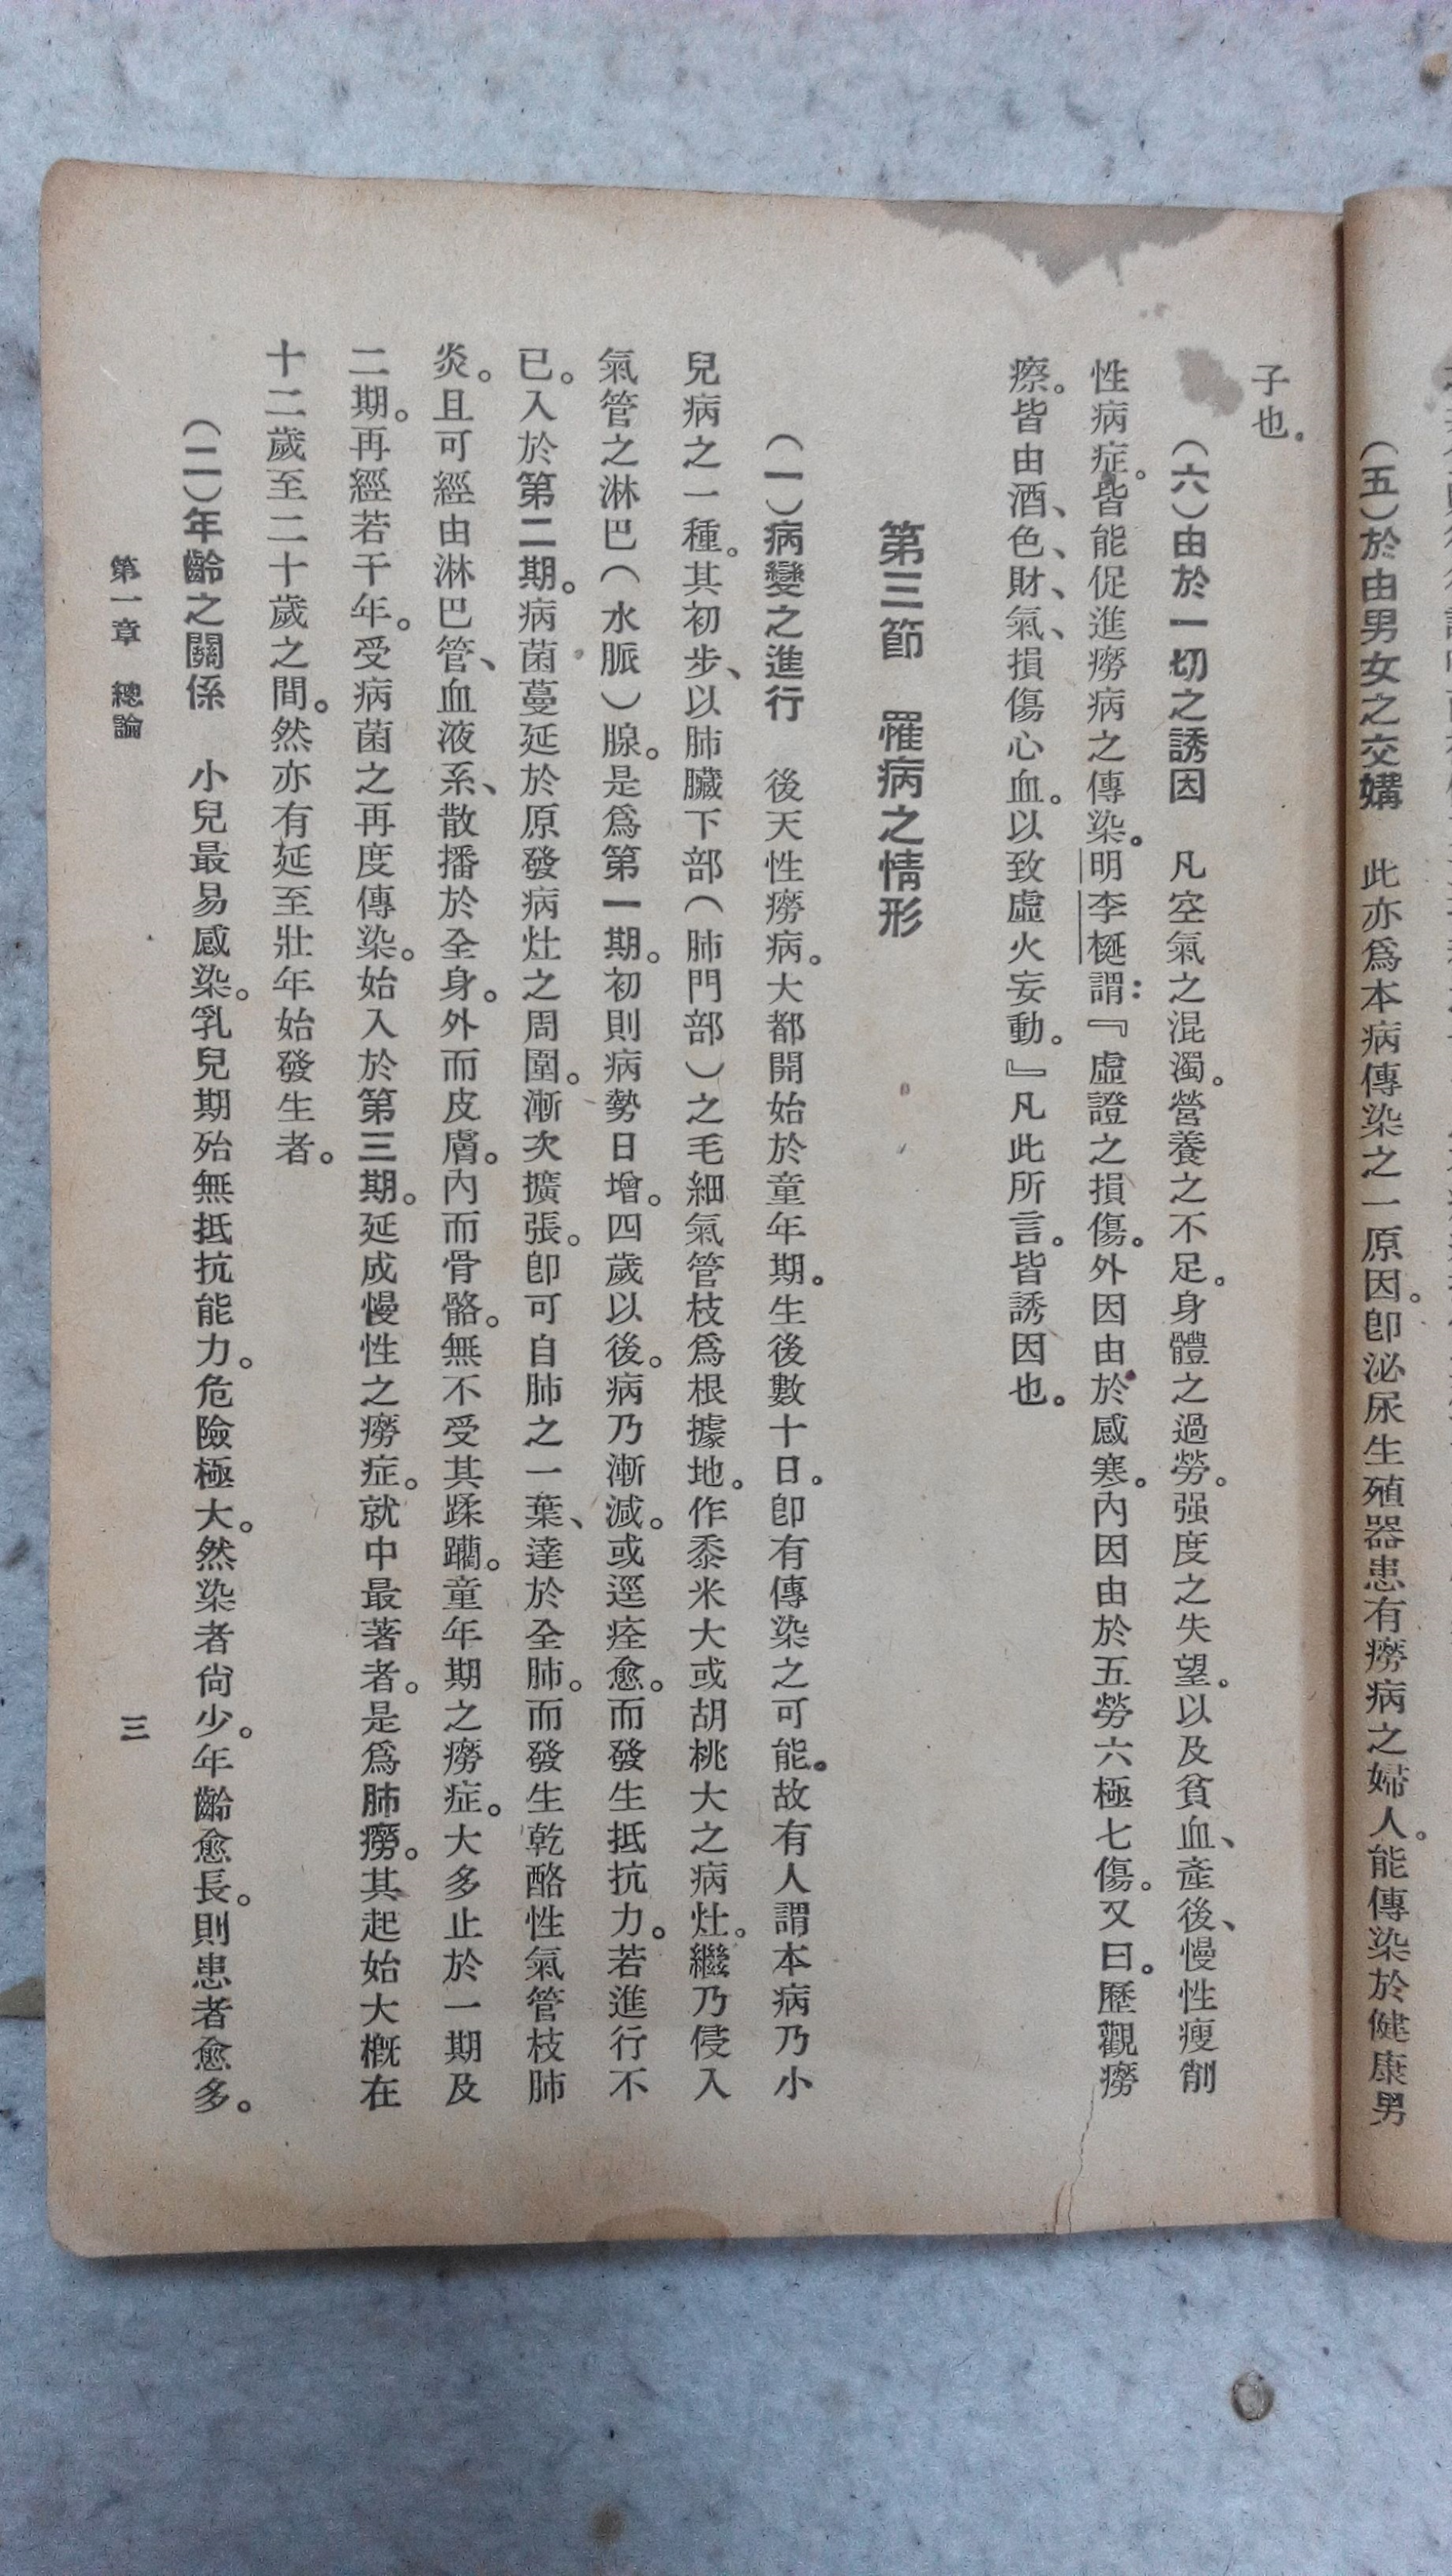 (五)於由男女之交媾　此亦爲本病傳染之一原因。卽泌尿生殖器患有癆病之婦人。能傳染於健康男
子也。
(六)由於一切之誘因　凡空氣之混濁。營養之不足。身體之過勞。强度之失望。以及貧血、產後、慢性瘦削
性病症。皆能促進癆病之傳染。明李梴謂：『虛證之損傷。外因由於感寒。內因由於五勞六極七傷。又曰。歷觀癆
瘵。皆由酒、色、財、氣、損傷心血。以致虛火妄動。』凡此所言。皆誘因也。
第三節　罹病之情形
(一)病變之進行　後天性癆病。大都開始於童年期。生後數十日。卽有傳染之可能。故有人謂本病乃小
兒病之一種。其初步、以肺臟下部(肺門部)之毛細氣管枝爲根據地。作黍米大或胡桃大之病灶。繼乃侵入
氣管之淋巴(水脈)腺。是爲第一期。初則病勢日增。四歲以後。病乃漸減。或逕痊愈。而發生抵抗力。若進行不
已。入於第二期。病菌蔓延於原發病灶之周圍。漸次擴張。卽可自肺之一葉、達於全肺。而發生乾酪性氣管枝肺
炎。且可經由淋巴管、血液系、散播於全身。外而皮膚。內而骨骼。無不受其蹂躪。童年期之癆症。大多止於一期及
二期。再經若干年。受病菌之再度傳染。始入於第三期。延成慢性之癆症。就中最著者。是爲肺癆。其起始大槪在
十二歲至二十歲之間。然亦有延至壯年始發生者。
(二)年齡之關係　小兒最易感染。乳兒期殆無抵抗能力。危險極大。然染者尙少。年齡愈長。則患者愈多。
第一章　總論　三